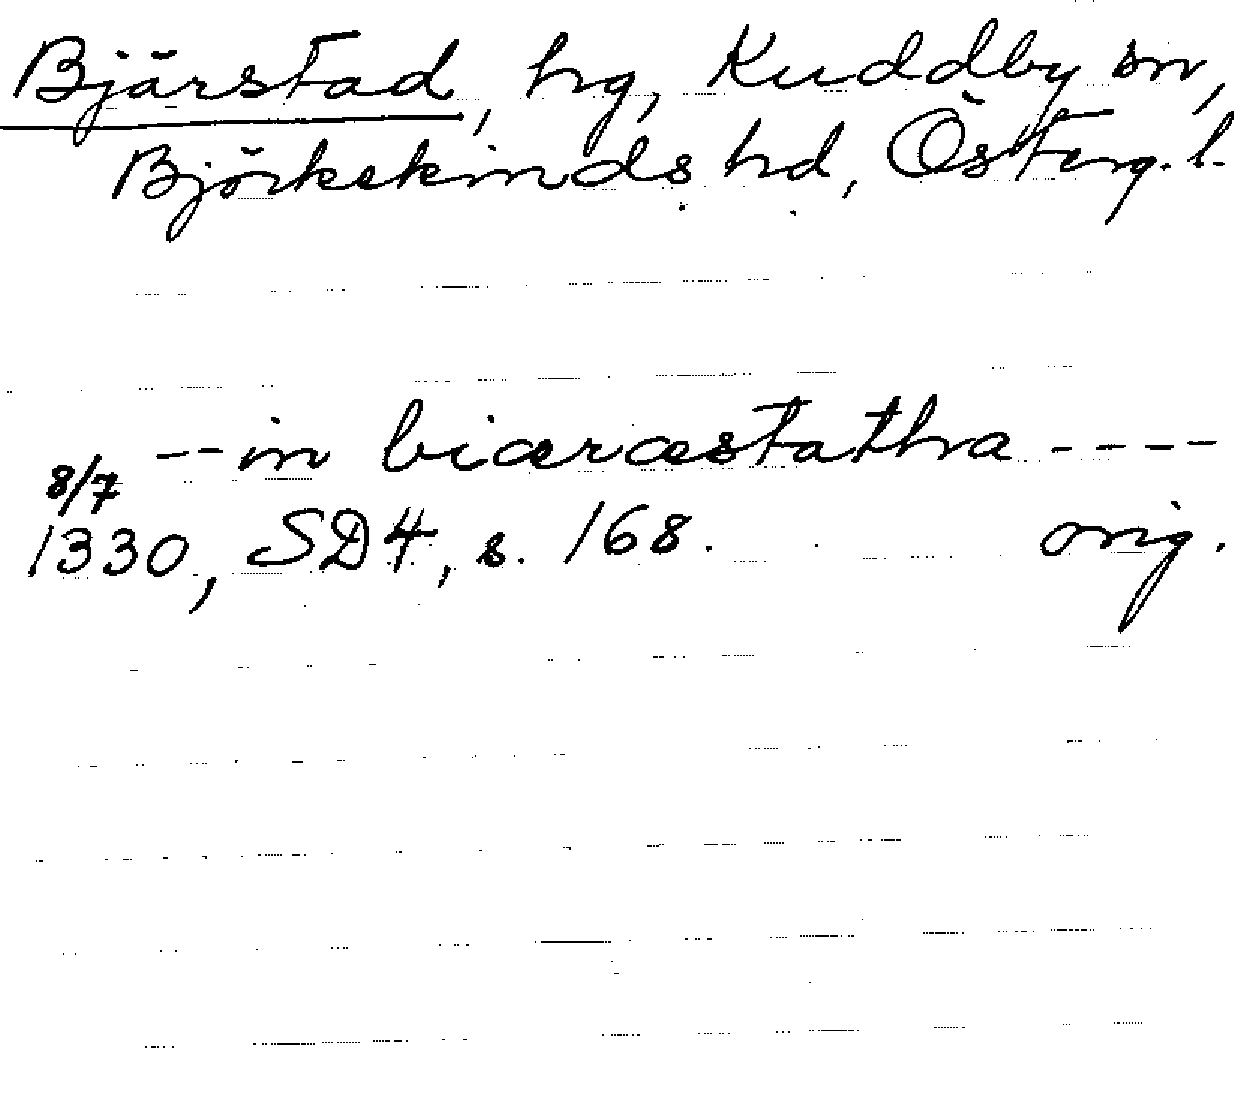 Bjärstad, hg, Kuddby sn,
Björkekinds hd, Österg. l.
-- in biæræstathra ----
8/7
1330, SD 4, s. 168. orig.